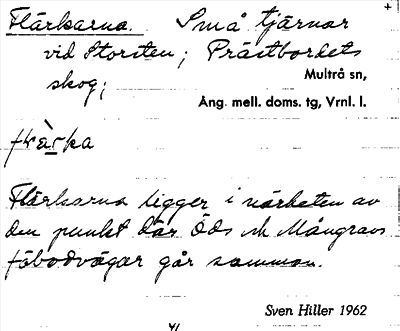 Flärkarna. Små tjärnar
vid Storsten; Prästbordets
skog;
Multrå sn,
Ång. mell. doms. tg, Vrnl. l.
Flärkarna ligger i närheten av
den punkt där Öds o Mångravs
fäbodvägar går samman.
Sven Hiller 1962